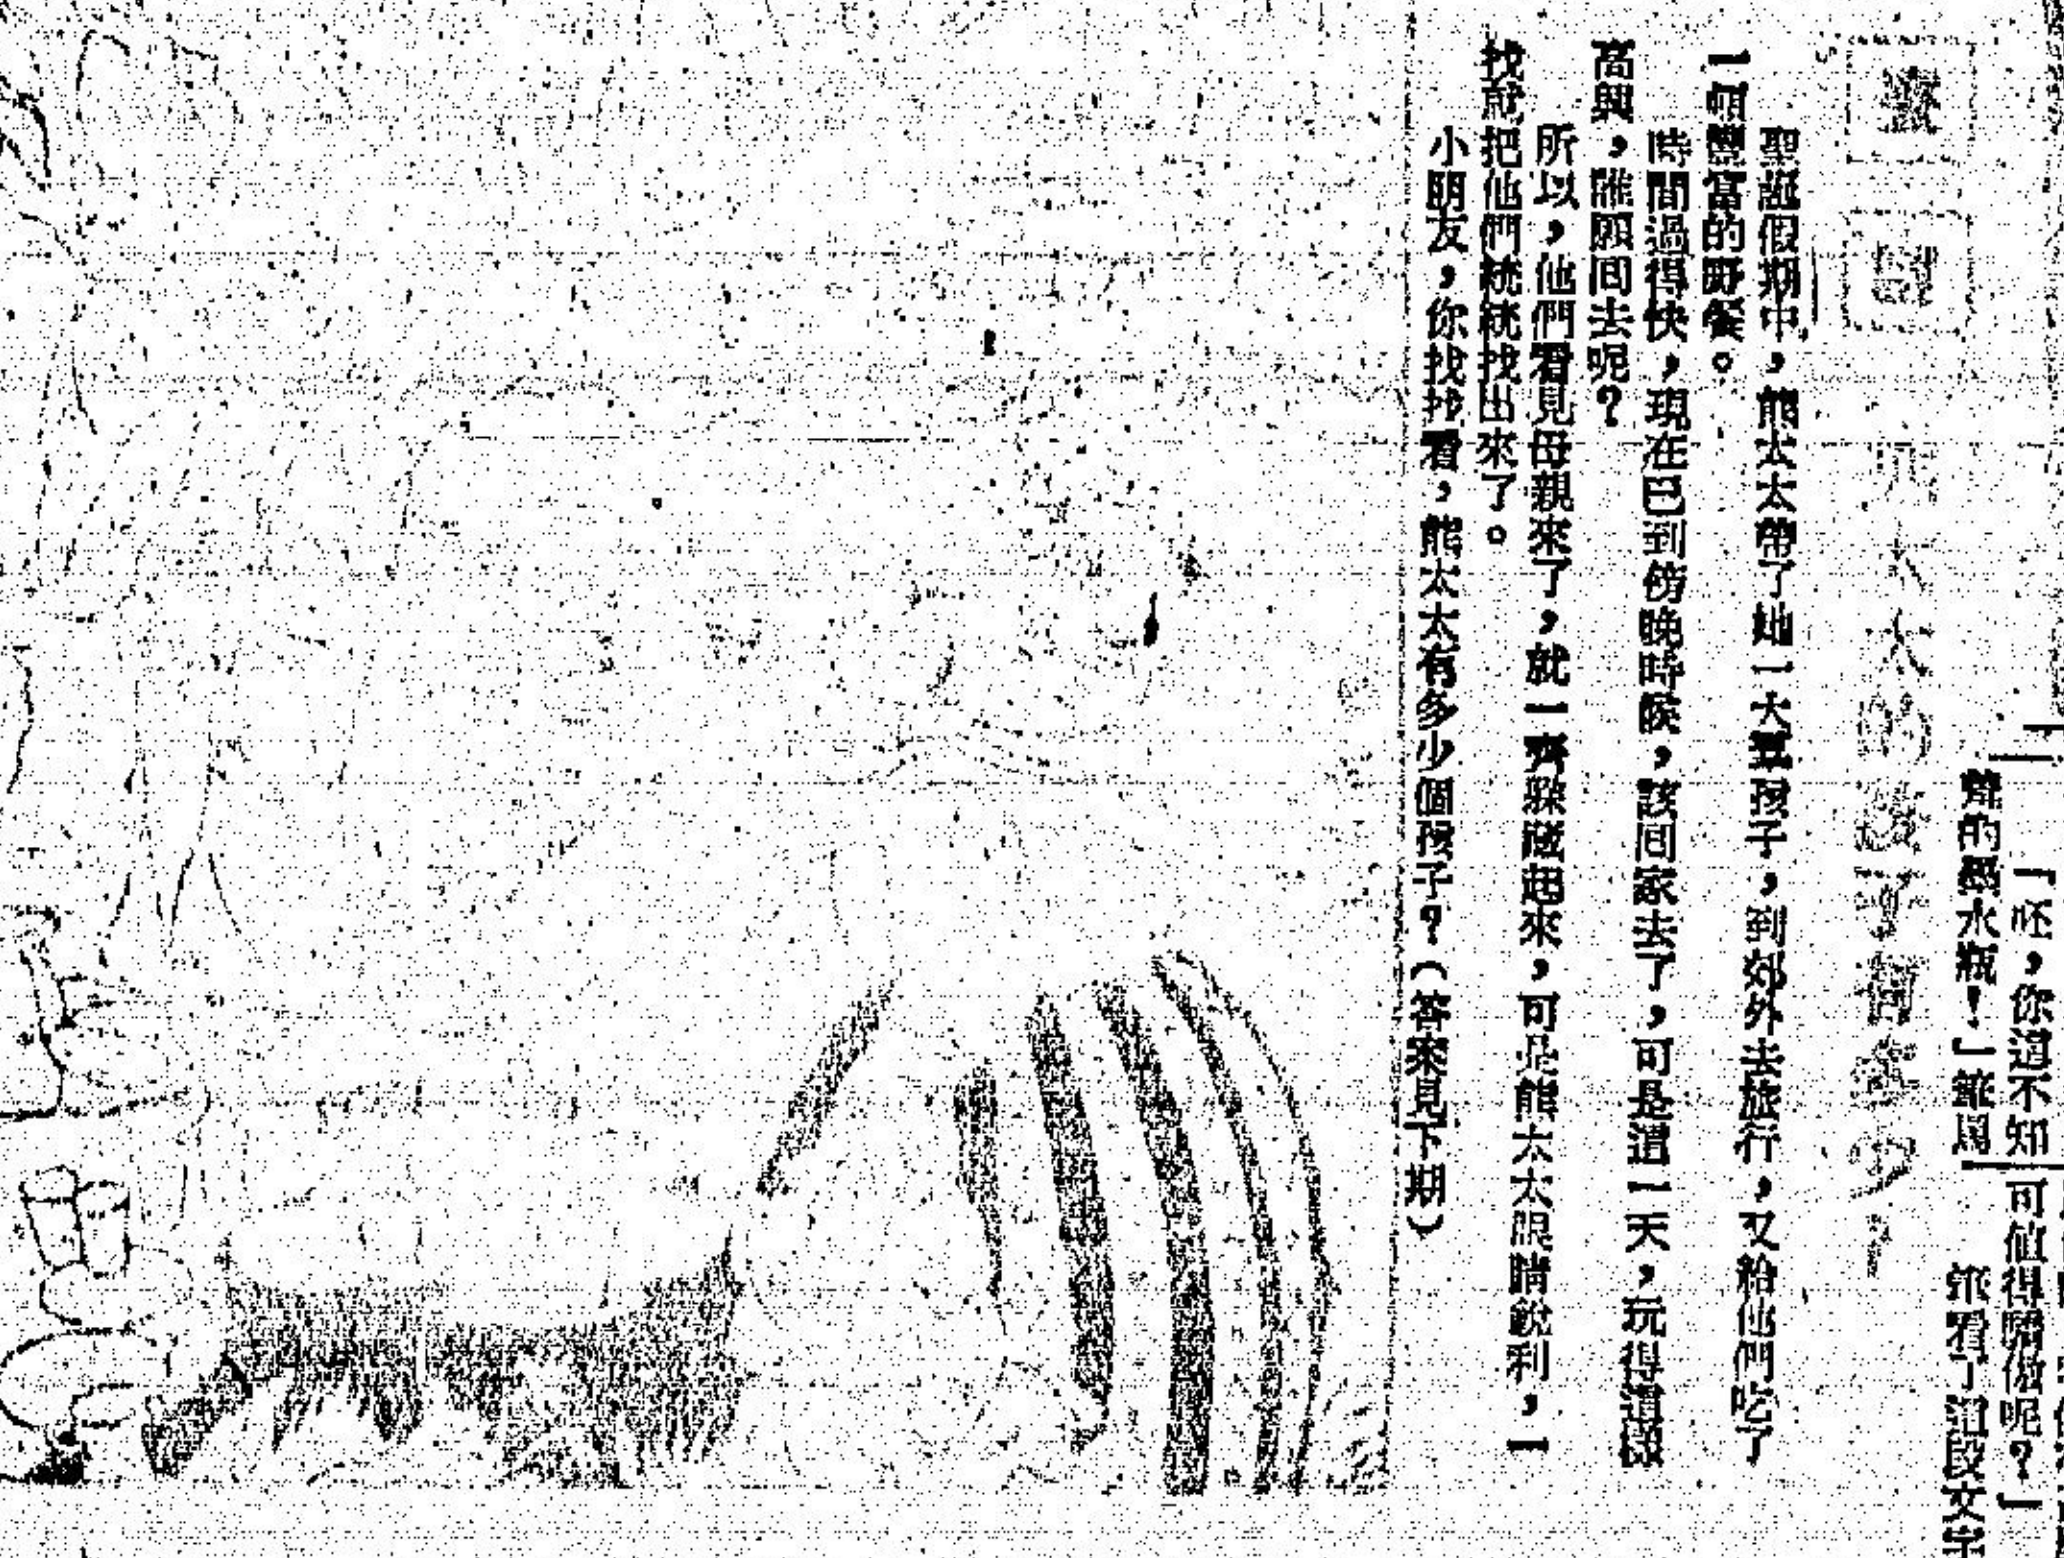 「呸，你這不知
聲的墨水瓶！」鉛
可值得驕傲呢？」
看了這段文字
太太的孩子有多少？
聖誕假期中，熊太太帶了她一大羣孩子，到郊外去旅行，又給他們吃了
一頓豐富的野餐。
時間過得快，現在巳到傍晚時候，該回家去了，可是這一天，玩得這樣
高興，誰願回去呢？
所以，他們看見母親來了，就一齊躲藏起來，可是熊太太眼睛銳利，一
找就把他們統統找出來了。
小朋友，你找找看，熊太太有多少個孩子？（答案見下期）